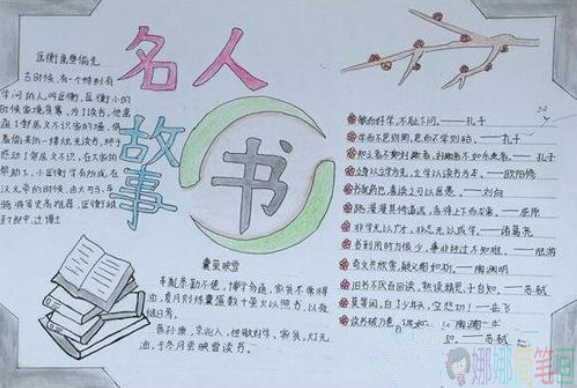 名人
故事
书
匡衡凿壁偷光
古时候,有一个特别有
学问的人叫匡衡,匡衡小的
时候家境贫寒,为了读书,他凿
通了邻居文不识家的墙,借
着偷来的一缕烛光读书,终于
感动了邻居文不识,在大家的
帮助下,小匡衡学有所成,在
汉元帝的时候,由大司马、车
骑将军史高推荐,匡衡被
封郎中,迁博士
囊萤映雪
车胤恭勤不倦,博学多通,家贫不常得
油,夏月则练囊盛数十萤火以照书,以夜
继日焉。
孙康,京兆人,性敏好学,家贫,灯无
油,于冬月尝映雪读书。
敏而好学,不耻下问。——孔子
学而不思则罔,思而不学则殆。——孔子
知之者不如好之者,好之者不如乐之者。——孔子
立身以立学为先,立学以读书为本。——欧阳修
书犹药也,善读之可以医愚。——刘向
路漫漫其修远兮,吾将上下而求索。——屈原
非学无以广才,非志无以成学。——诸葛亮
书到用时方恨少,事非经过不知难。——陆游
奇文共欣赏,疑义相与析。——陶渊明
旧书不厌百回读,熟读精思子自知。——苏轼
莫等闲,白了少年头,空悲切!——岳飞
读书破万卷
——苏轼
娜娜简笔画